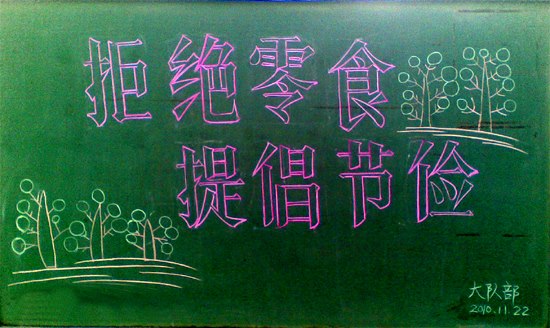 拒绝零食
提倡节俭
大队部
2010.11.22